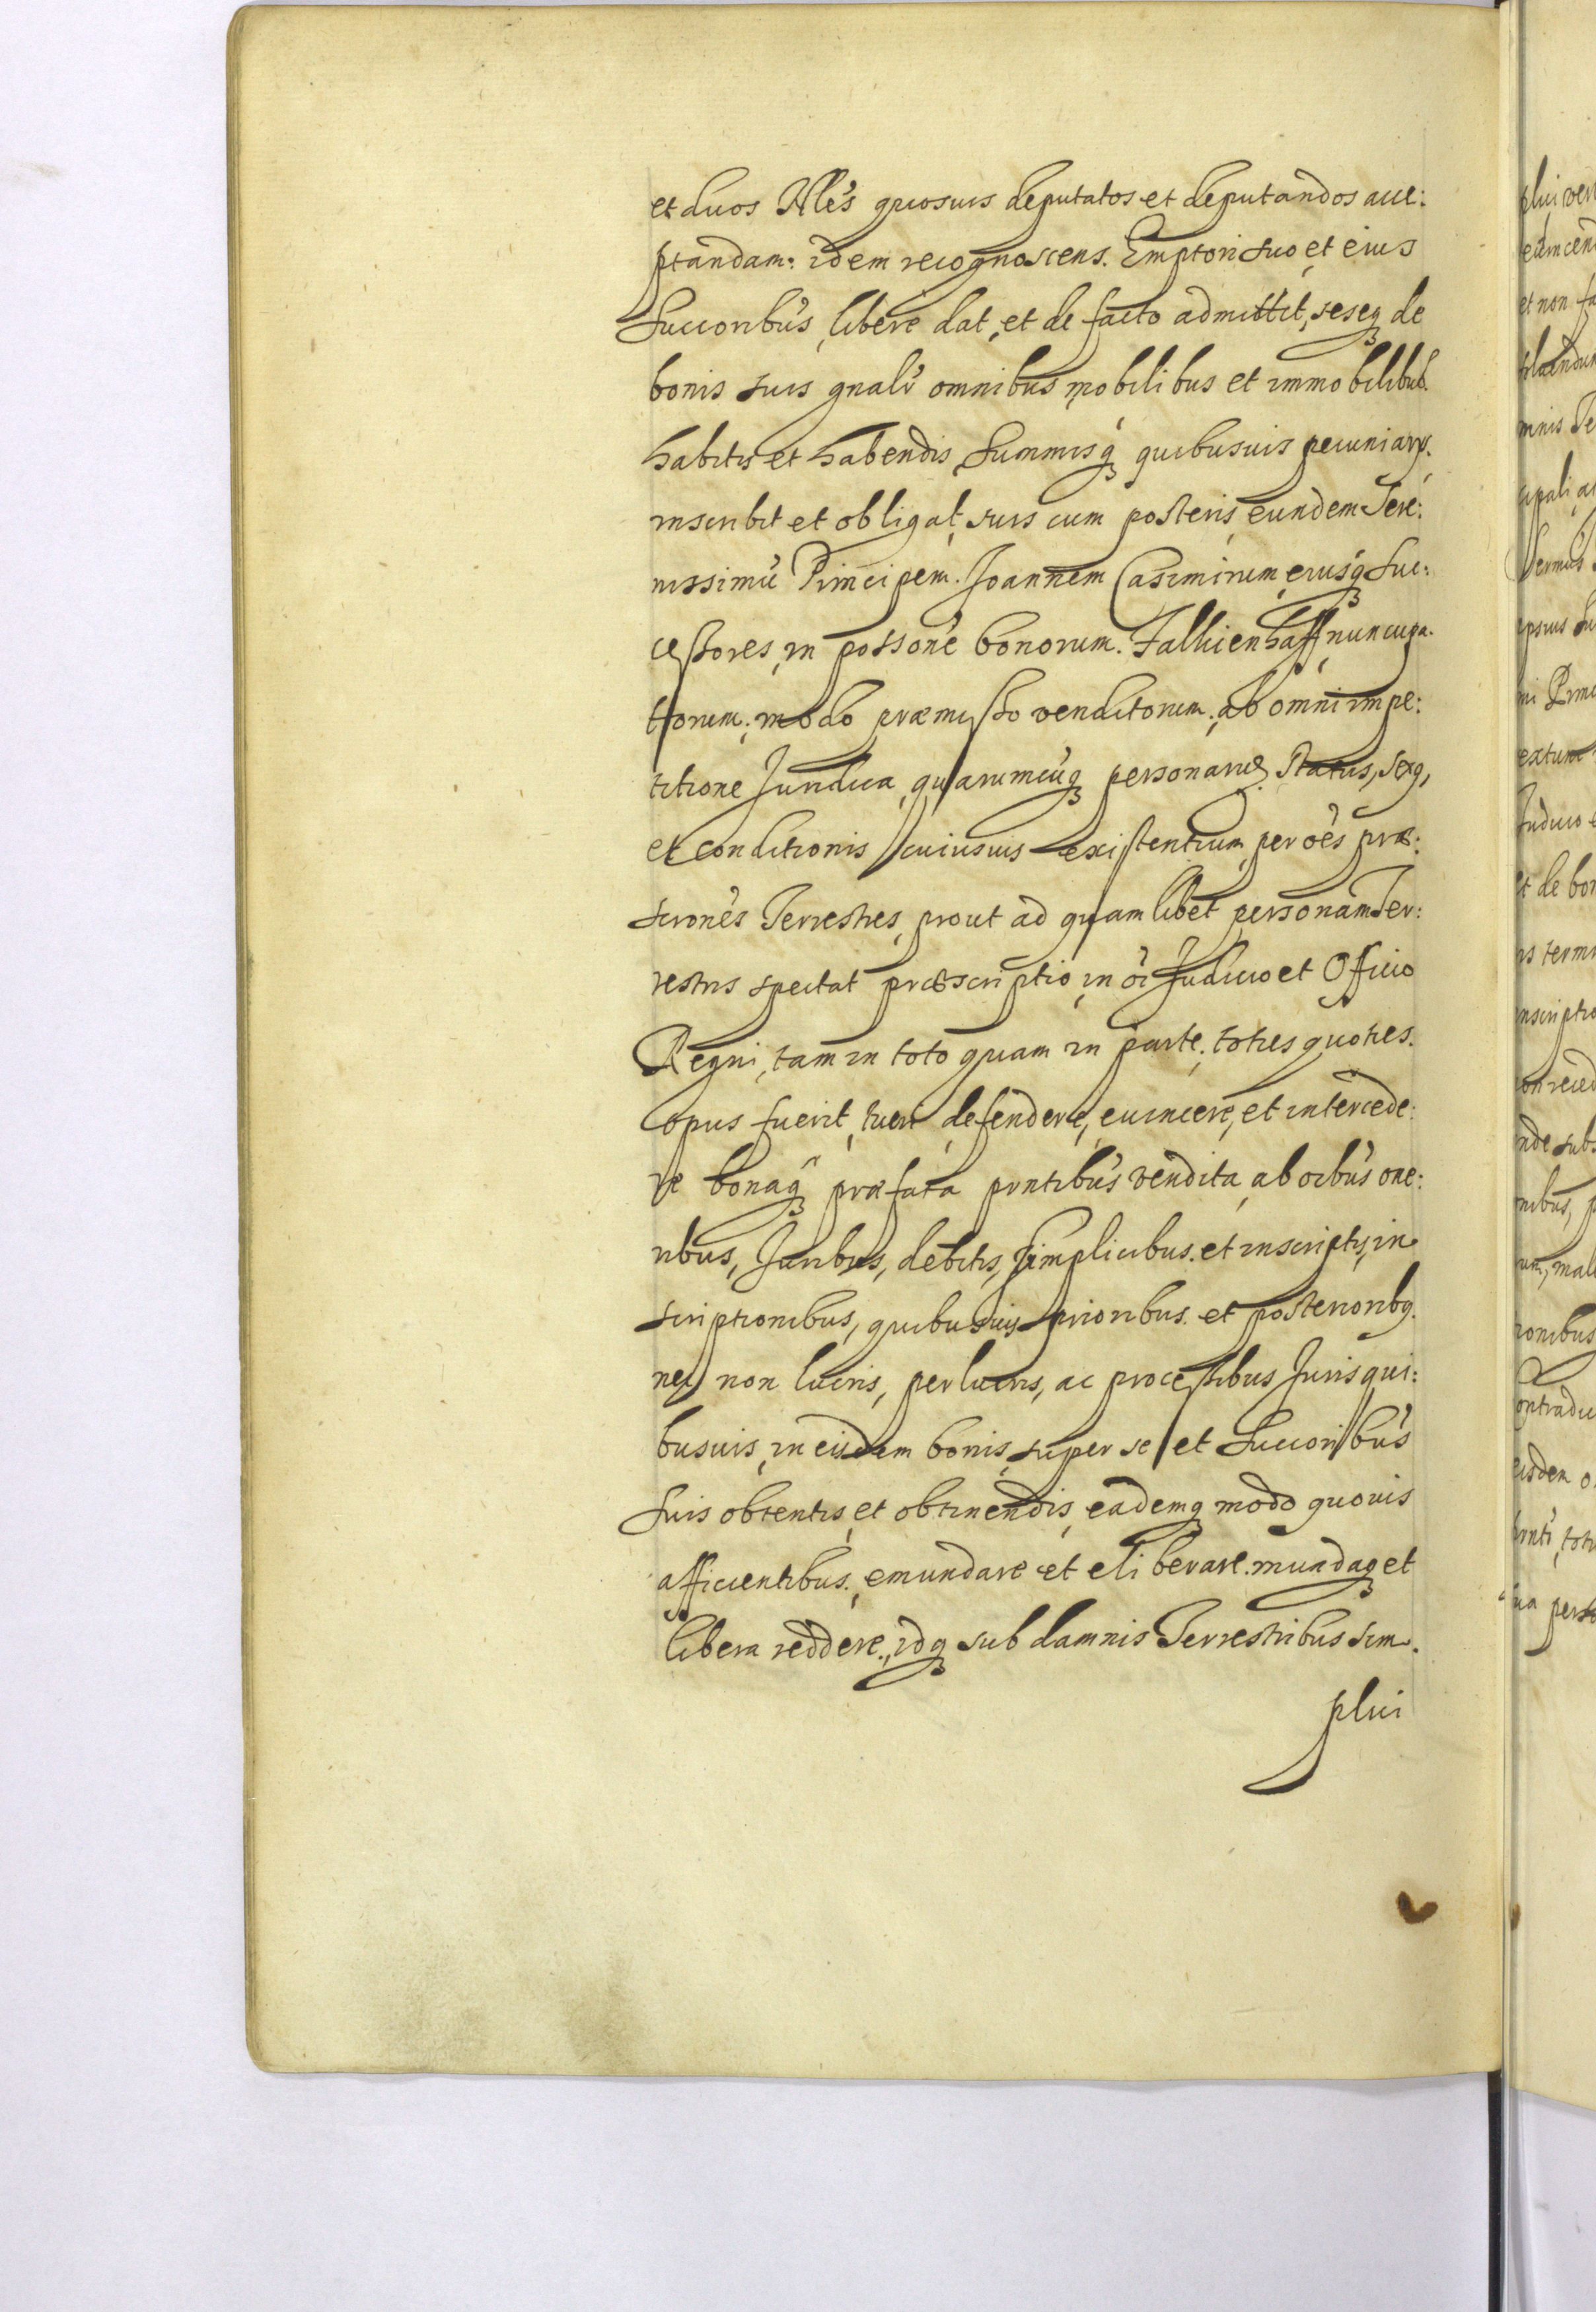 et duos Nlės quosuis deputatos et deputandos acce:
ptandam: idem recognoscens. Emptori suo, et eius
Succoribus, libere dat, et de facto admittit, seseq de
bonis suis gnalr omnibus mobilibus et immobilibus
habitis et habendis Summisq quibusuis pecuniarys.
inscribit et obligat, suis cum posteris, eundem Sere:
nissimū Principem. Joannem Casimirum, eiusq Suc:
cessores, in possone bonorum. Falkienhaff nuncupa.
torum; modo præmisso venditorum; ab omni impe:
titione Juridica, quarumcuq personarū Status, sexq,
et conditionis cuiusuis existentium, per oēs præ:
scronēs Terrestres, prout ad quamlibet personam Ter:
restris spectat præscriptio, in oī Judicio et Officio
Regni, tam in toto quam in parte, toties quoties.
opus fuerit, tueri, defendere, euincere, et intercede:
re bonaq præfata pntibus vendita, ab oibus one:
ribus, Juribus, debitis, simplicibus. et inscriptis, in
scriptionibus, quibusuis prioribus. et posterioribq.
nec non lucris, perlucris, ac processibus Juris qui:
busuis, in eisdem bonis, super se et Succoribus
Suis obtentis, et obtinendis, eademq modo quouis
afficientibus, emundare et eliberare. mundaq et
libera reddere., idq sub damnis Terrestribus sim.
plici